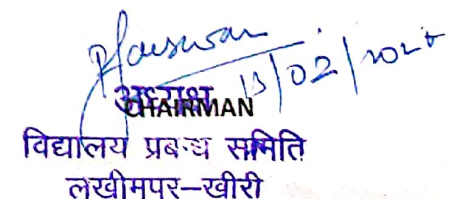 13/02/202
अध्यक्ष
CHAIRMAN
विद्यालय प्रबन्ध समिति
लखीमपर–खीरी